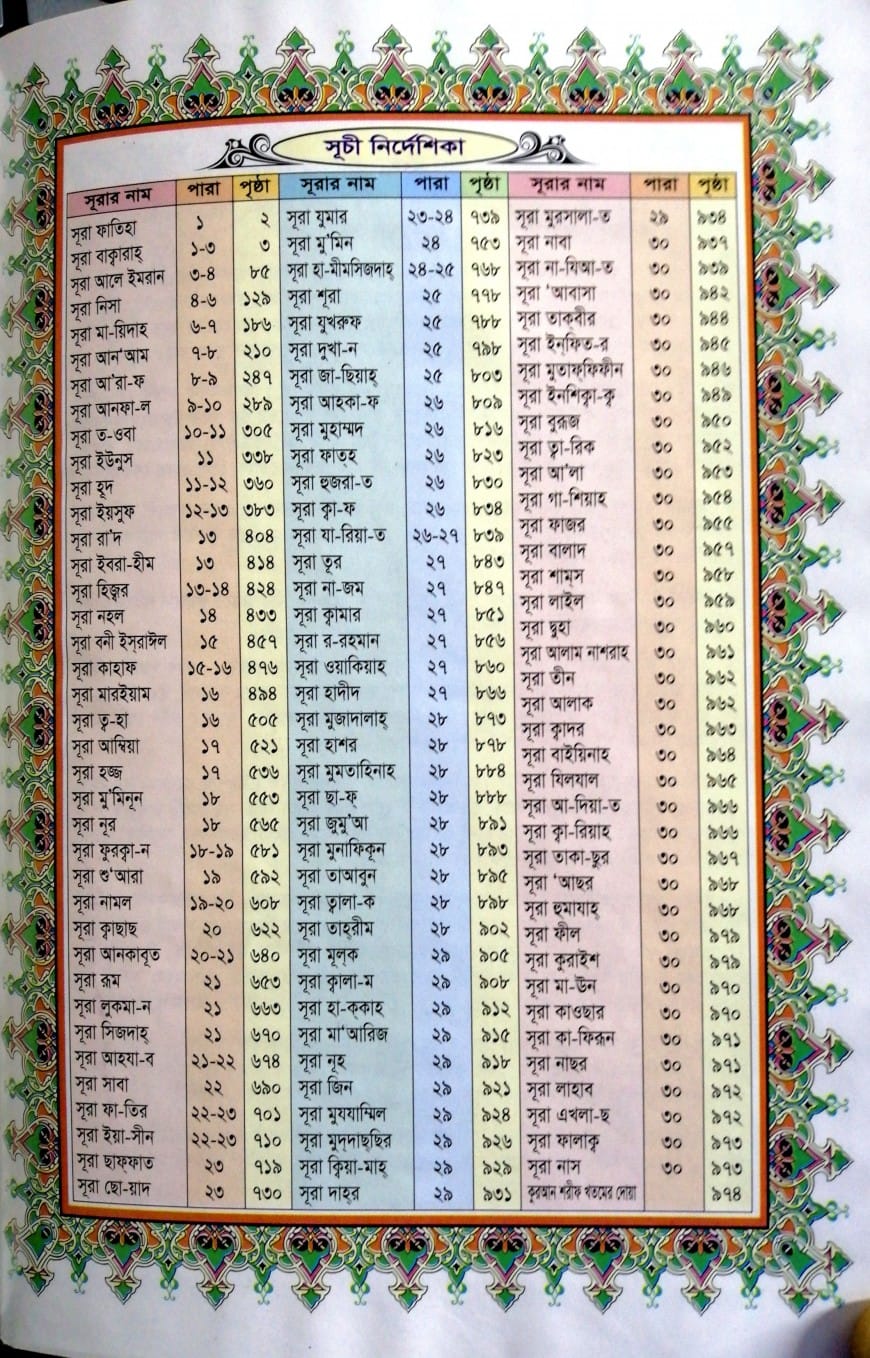 সূচী নির্দেশিকা
সূরার নাম পারা পৃষ্ঠা
সূরা ফাতিহা ১ ২
সূরা বাক্বারাহ্ ১-৩ ৩
সূরা আলে ইমরান ৩-৪ ৮৫
সূরা নিসা ৪-৬ ১২৯
সূরা মা-য়িদাহ ৬-৭ ১৮৬
সূরা আন‘আম ৭-৮ ২১০
সূরা আ'রা-ফ ৮-৯ ২৪৭
সূরা আনফা-ল ৯-১০ ২৮৯
সূরা ত-ওবা ১০-১১ ৩০৫
সূরা ইউনুস ১১ ৩৩৮
সূরা হূদ ১১-১২ ৩৬০
সূরা ইয়সুফ ১২-১৩ ৩৮৩
সূরা রা'দ ১৩ ৪০৪
সূরা ইবরা-হীম ১৩ ৪১৪
সূরা হিজ্বর ১৩-১৪ ৪২৪
সূরা নহল ১৪ ৪৩৩
সূরা বনী ইস্রাঈল ১৫ ৪৫৭
সূরা কাহাফ ১৫-১৬ ৪৭৬
সূরা মারইয়াম ১৬ ৪৯৪
সূরা ত্ব-হা ১৬ ৫০৫
সূরা আম্বিয়া ১৭ ৫২১
সূরা হজ্জ ১৭ ৫৩৬
সূরা মু'মিনূন ১৮ ৫৫৩
সূরা নূর ১৮ ৫৬৫
সূরা ফুরক্বা-ন ১৮-১৯ ৫৮১
সূরা শু‘আরা ১৯ ৫৯২
সূরা নামল ১৯-২০ ৬০৮
সূরা ক্বাছাছ ২০ ৬২২
সূরা আনকাবূত ২০-২১ ৬৪০
সূরা রূম ২১ ৬৫৩
সূরা লুকমা-ন ২১ ৬৬৩
সূরা সিজদাহ্ ২১ ৬৭০
সূরা আহযা-ব ২১-২২ ৬৭৪
সূরা সাবা ২২ ৬৯০
সূরা ফা-তির ২২-২৩ ৭০১
সূরা ইয়া-সীন ২২-২৩ ৭১০
সূরা ছাফ্ফাত ২৩ ৭১৯
সূরা ছো-য়াদ ২৩ ৭৩০
সূরার নাম পারা পৃষ্ঠা
সূরা যুমার ২৩-২৪ ৭৩৯
সূরা মু'মিন ২৪ ৭৫৩
সূরা হা-মীমসিজদাহ্ ২৪-২৫ ৭৬৮
সূরা শূরা ২৫ ৭৭৮
সূরা যুখরুফ ২৫ ৭৮৮
সূরা দুখা-ন ২৫ ৭৯৮
সূরা জা-ছিয়াহ্ ২৫ ৮০৩
সূরা আহকা-ফ ২৬ ৮০৯
সূরা মুহাম্মদ ২৬ ৮১৬
সূরা ফাত্হ ২৬ ৮২৩
সূরা হুজরা-ত ২৬ ৮৩০
সূরা ক্বা-ফ ২৬ ৮৩৪
সূরা যা-রিয়া-ত ২৬-২৭ ৮৩৯
সূরা তূর ২৭ ৮৪৩
সূরা না-জম ২৭ ৮৪৭
সূরা ক্বামার ২৭ ৮৫১
সূরা র-রহমান ২৭ ৮৫৬
সূরা ওয়াকিয়াহ্ ২৭ ৮৬০
সূরা হাদীদ ২৭ ৮৬৬
সূরা মুজাদালাহ্ ২৮ ৮৭৩
সূরা হাশর ২৮ ৮৭৮
সূরা মুমতাহিনাহ ২৮ ৮৮৪
সূরা ছা-ফ্ ২৮ ৮৮৮
সূরা জুমু'আ ২৮ ৮৯১
সূরা মুনাফিকুন ২৮ ৮৯৩
সূরা তাআবুন ২৮ ৮৯৫
সূরা ত্বালা-ক ২৮ ৮৯৮
সূরা তাহ্রীম ২৮ ৯০২
সূরা মূলক ২৯ ৯০৫
সূরা ক্বালা-ম ২৯ ৯০৮
সূরা হা-ক্কাহ ২৯ ৯১২
সূরা মা‘আরিজ ২৯ ৯১৫
সূরা নূহ ২৯ ৯১৮
সূরা জিন ২৯ ৯২১
সূরা মুযযাম্মিল ২৯ ৯২৪
সূরা মুদ্দাছ্ছির ২৯ ৯২৬
সূরা ক্বিয়া-মাহ্ ২৯ ৯২৯
সূরা দাহ্র ২৯ ৯৩১
সূরার নাম পারা পৃষ্ঠা
সূরা মুরসালা-ত ২৯ ৯৩৪
সূরা নাবা ৩০ ৯৩৭
সূরা না-যিআ-ত ৩০ ৯৩৯
সূরা ‘আবাসা ৩০ ৯৪২
সূরা তাকবীর ৩০ ৯৪৪
সূরা ইন্ফিত-র ৩০ ৯৪৫
সূরা মুতাফ্ফিফীন ৩০ ৯৪৬
সূরা ইনশিক্বা-ক্ব ৩০ ৯৪৯
সূরা বুরূজ ৩০ ৯৫০
সূরা ত্বা-রিক ৩০ ৯৫২
সূরা আ'লা ৩০ ৯৫৩
সূরা গা-শিয়াহ ৩০ ৯৫৪
সূরা ফাজর ৩০ ৯৫৫
সূরা বালাদ ৩০ ৯৫৭
সূরা শাম্স ৩০ ৯৫৮
সূরা লাইল ৩০ ৯৫৯
সূরা দ্বুহা ৩০ ৯৬০
সূরা আলাম নাশরাহ ৩০ ৯৬১
সূরা তীন ৩০ ৯৬২
সূরা আলাক ৩০ ৯৬২
সূরা ক্বাদর ৩০ ৯৬৩
সূরা বাইয়িনাহ ৩০ ৯৬৪
সূরা যিলযাল ৩০ ৯৬৫
সূরা আ-দিয়া-ত ৩০ ৯৬৬
সূরা ক্বা-রিয়াহ ৩০ ৯৬৬
সূরা তাকা-ছুর ৩০ ৯৬৭
সূরা ‘আছর ৩০ ৯৬৮
সূরা হুমাযাহ্ ৩০ ৯৬৮
সূরা ফীল ৩০ ৯৭৯
সূরা কুরাইশ ৩০ ৯৭৯
সূরা মা-ঊন ৩০ ৯৭০
সূরা কাওছার ৩০ ৯৭০
সূরা কা-ফিরূন ৩০ ৯৭১
সূরা নাছর ৩০ ৯৭১
সূরা লাহাব ৩০ ৯৭২
সূরা এখলা-ছ ৩০ ৯৭২
সূরা ফালাক্ব ৩০ ৯৭৩
সূরা নাস ৩০ ৯৭৩
কুরআন শরীফ খতমের দোয়া ৯৭৪